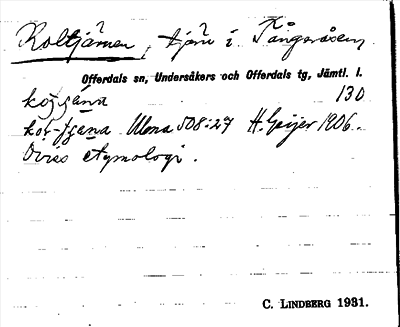 Koltjärnen, tjärn i Tångeråsen
Offerdals sn, Undersåkers och Offerdals tg, Jämtl. l.
130
Ulma 508:27 H. Geijer 1906.
Oviss etymologi.
C. LINDBERG 1931.